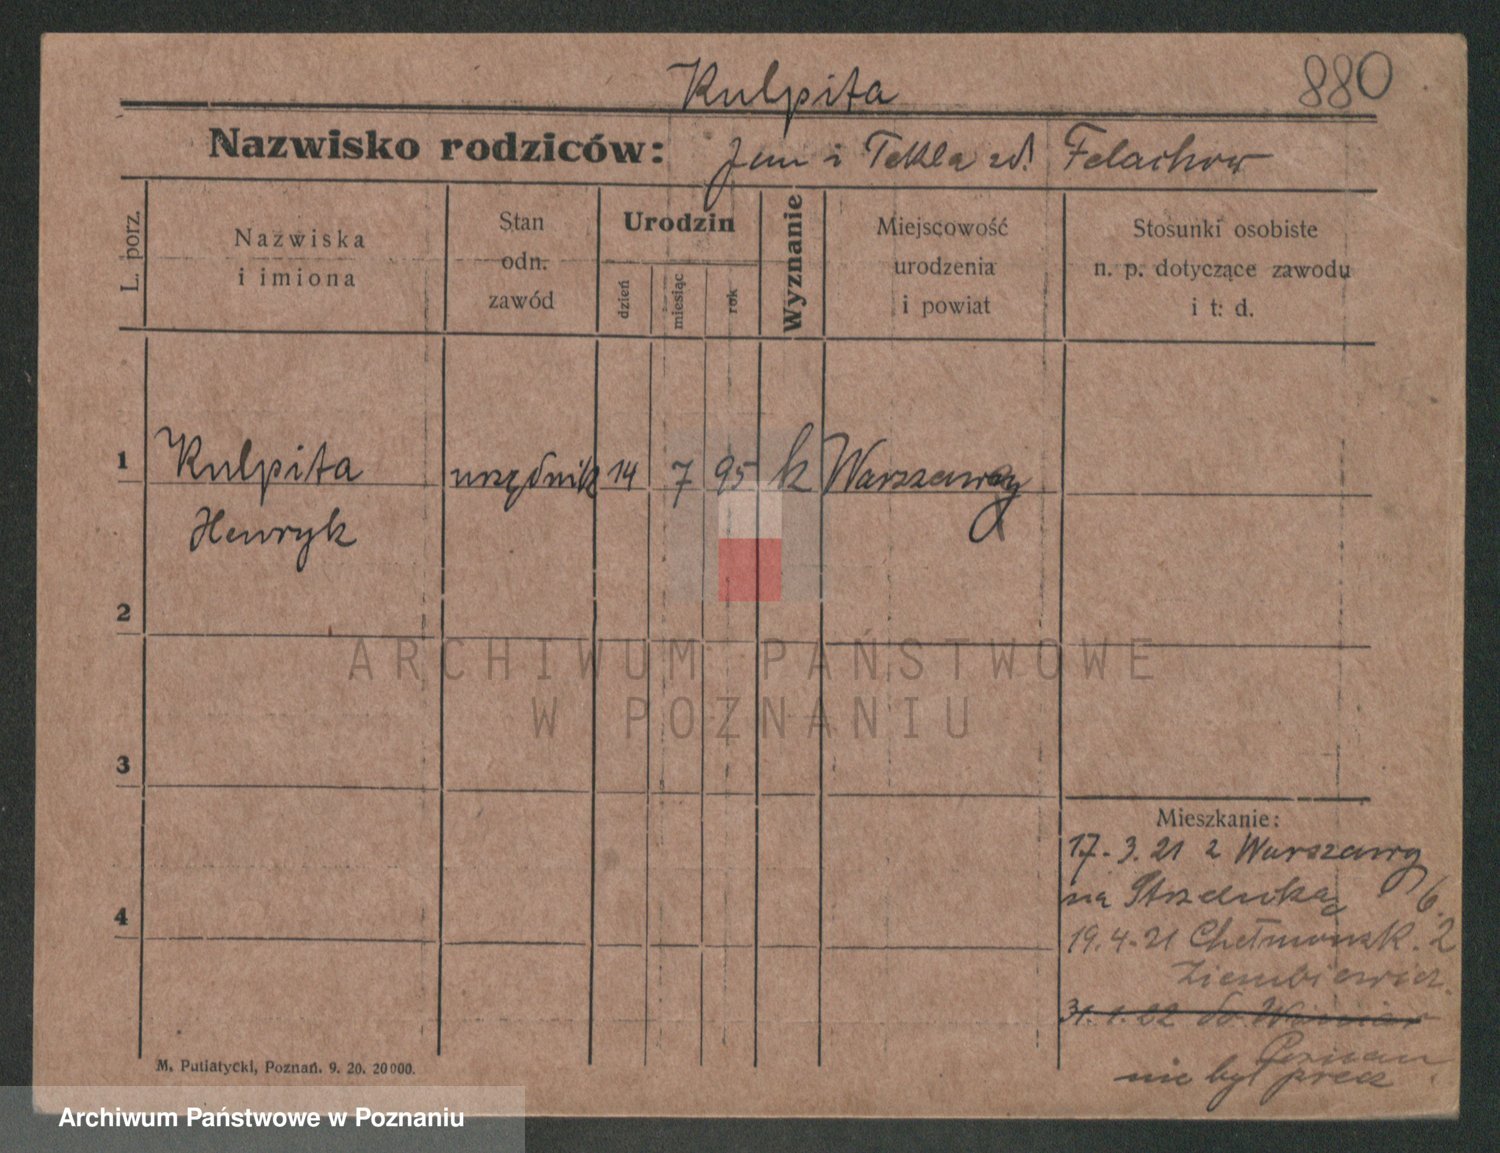 880
Kulpita
Nazwisko rodziców: Jan i Tekla zd. Felachow
L. porz.
Nazwiska
i imiona
Stan
odn.
zawód
Urodzin
dzień
miesiąc
rok
Wyznanie
Miejscowość
urodzenia
i powiat
Stosunki osobiste
n. p. dotyczące zawodu
i t. d.
1 Kulpita urzędnik 14 7 95 k Warszawa
Henryk
2
3
4
Mieszkanie:
17.3.21 z Warszawy
na Strzelecką 6.
19.4.21 Chełmońsk. 2
Ziembiewicz.
31.1.22 do
Poznań
nie był precz
M. Putiatycki, Poznań. 9. 20. 20000.
ARCHIWUM PAŃSTWOWE
W POZNANIU
Archiwum Państwowe w Poznaniu